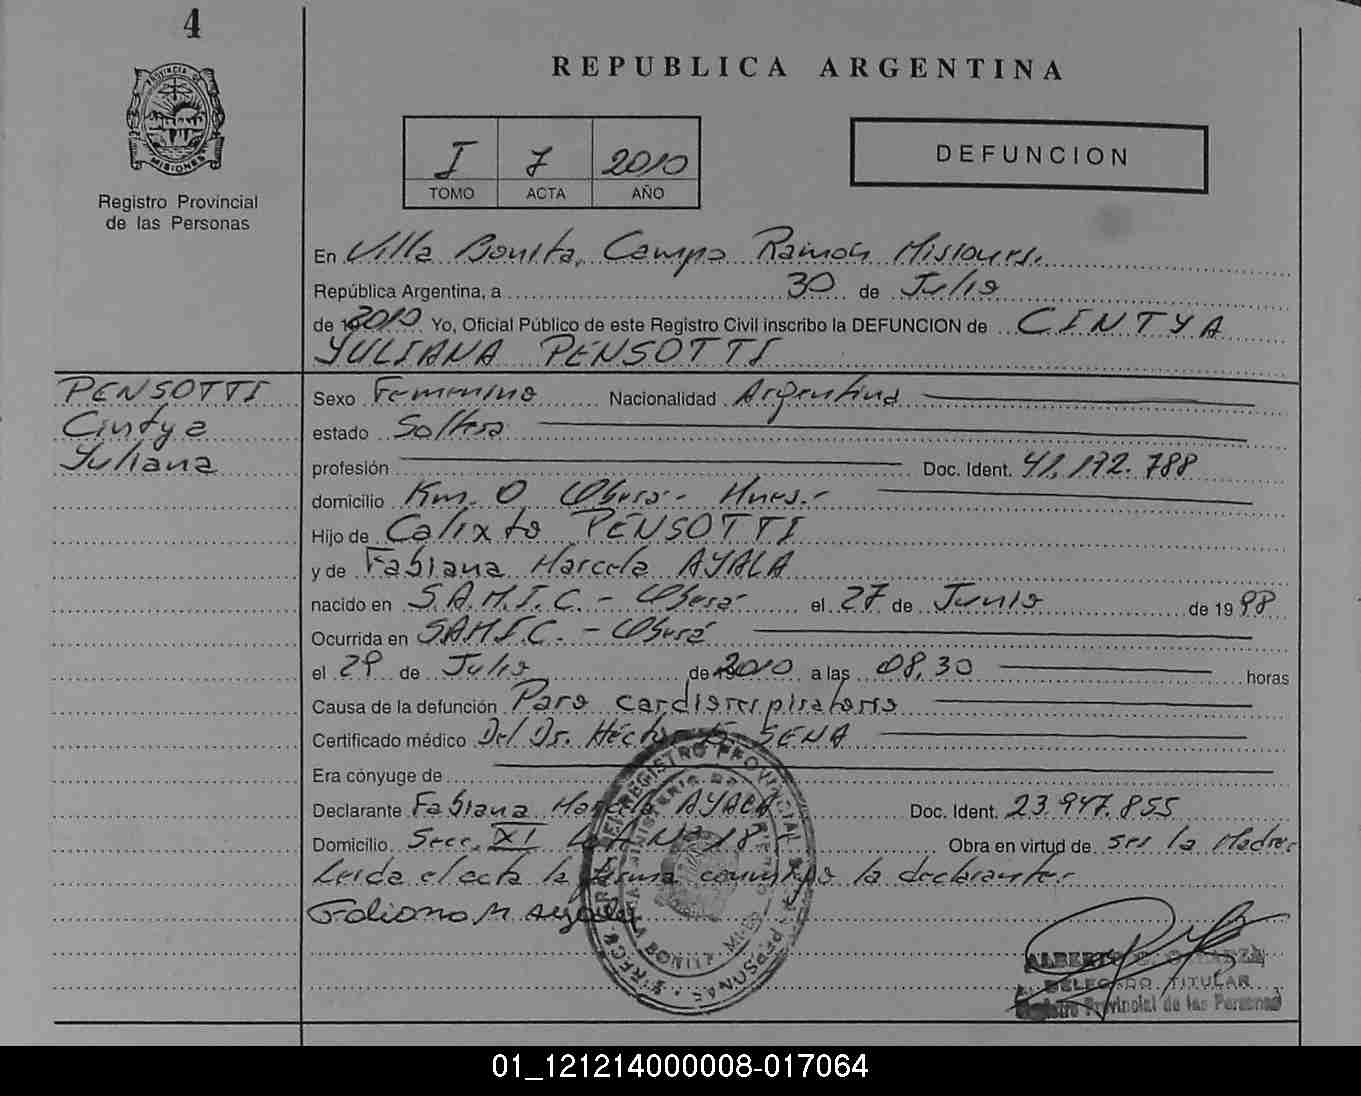 4
PROVINCIA DE
MISIONES
Registro Provincial
de las Personas
REPUBLICA ARGENTINA
I 7 2010
TOMO ACTA AÑO
DEFUNCION
En Villa Bonita, Campo Ramón Misiones.
República Argentina, a 30 de Julio
de 2010 Yo, Oficial Público de este Registro Civil inscribo la DEFUNCION de CINTYA
YULIANA PENSOTTI
PENSOTTI
Cintya
Yuliana
Sexo Femenino Nacionalidad Argentina
estado Soltera
profesión Doc. Ident. 41.192.788
domicilio Km. 0 Oberá - Mnes.-
Hijo de Calixto PENSOTTI
y de Fabiana Marcela AYALA
nacido en S.A.M.I.C. - Oberá el 27 de Junio de 1998
Ocurrida en S.A.M.I.C. - Oberá
el 29 de Julio de 2010 a las 08,30 horas
Causa de la defunción Paro cardiorrespiratorio
Certificado médico Del Dr. Héctor SENA
Era cónyuge de
Declarante Fabiana Marcela AYALA Doc. Ident. 23.947.855
Domicilio Secc. XI Lote Nº 18 Obra en virtud de ser la Madre.
Leida el acta la firma conmigo la declarante.
Fabiana M. Ayala
REGISTRO PROVINCIAL DE LAS PERSONAS
VILLA BONITA
ALBERTO
DELEGADO TITULAR
Registro Provincial de las Personas
01_121214000008-017064